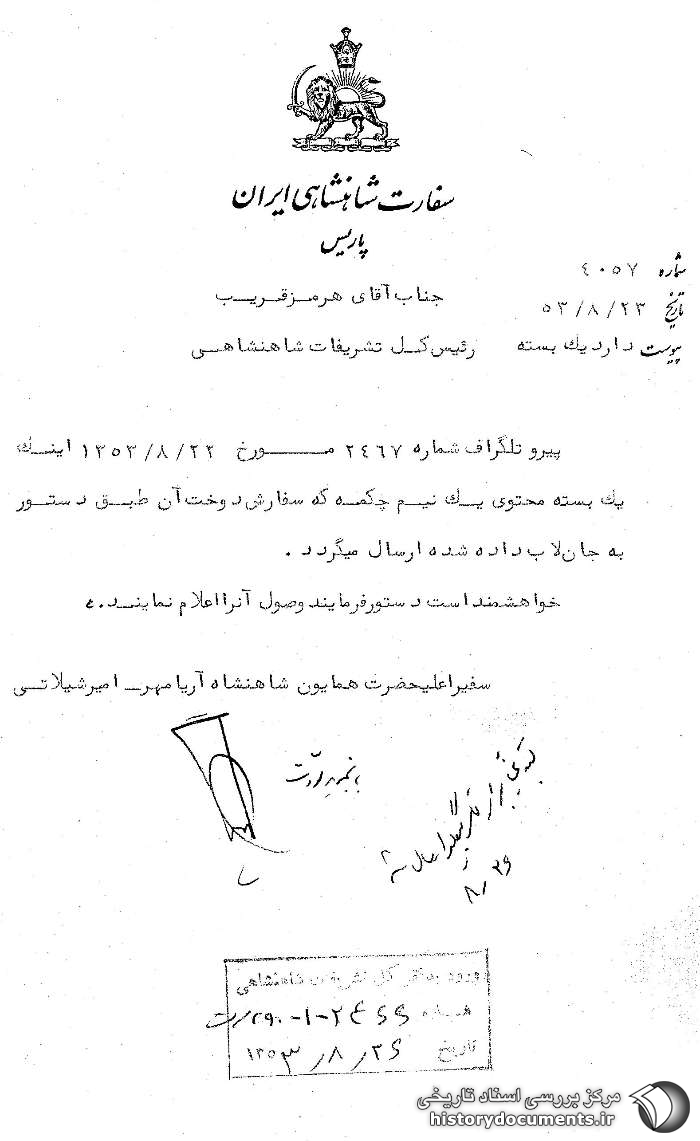 سفارت شاهنشاهی ایران
پاریس
شماره ٤٠٥٧
تاریخ ٥٣/٨/٢٣
پیوست دارد یك بسته
جناب آقای هرمز قریب
رئیس کل تشریفات شاهنشاهی
پیرو تلگراف شماره ٢٤٦٧ مورخ ١٣٥٣/٨/٢٢ اینك
یك بسته محتوی یك نیم چکمه که سفارش دوخت آن طبق دستور
به جان لاب داده شده ارسال میگردد .
خواهشمند است دستور فرمایند وصول آنرا اعلام نمایند.
سفیر اعلیحضرت همایون شاهنشاه آریامهر_ امیر شیلاتی
با تجدید ارادت
٨/٢٦
ورود به دفتر کل تشریفات شاهنشاهی
شماره
تاریخ ١٣٥٣/٨/٢٦
مرکز بررسی اسناد تاریخی
historydocuments.ir